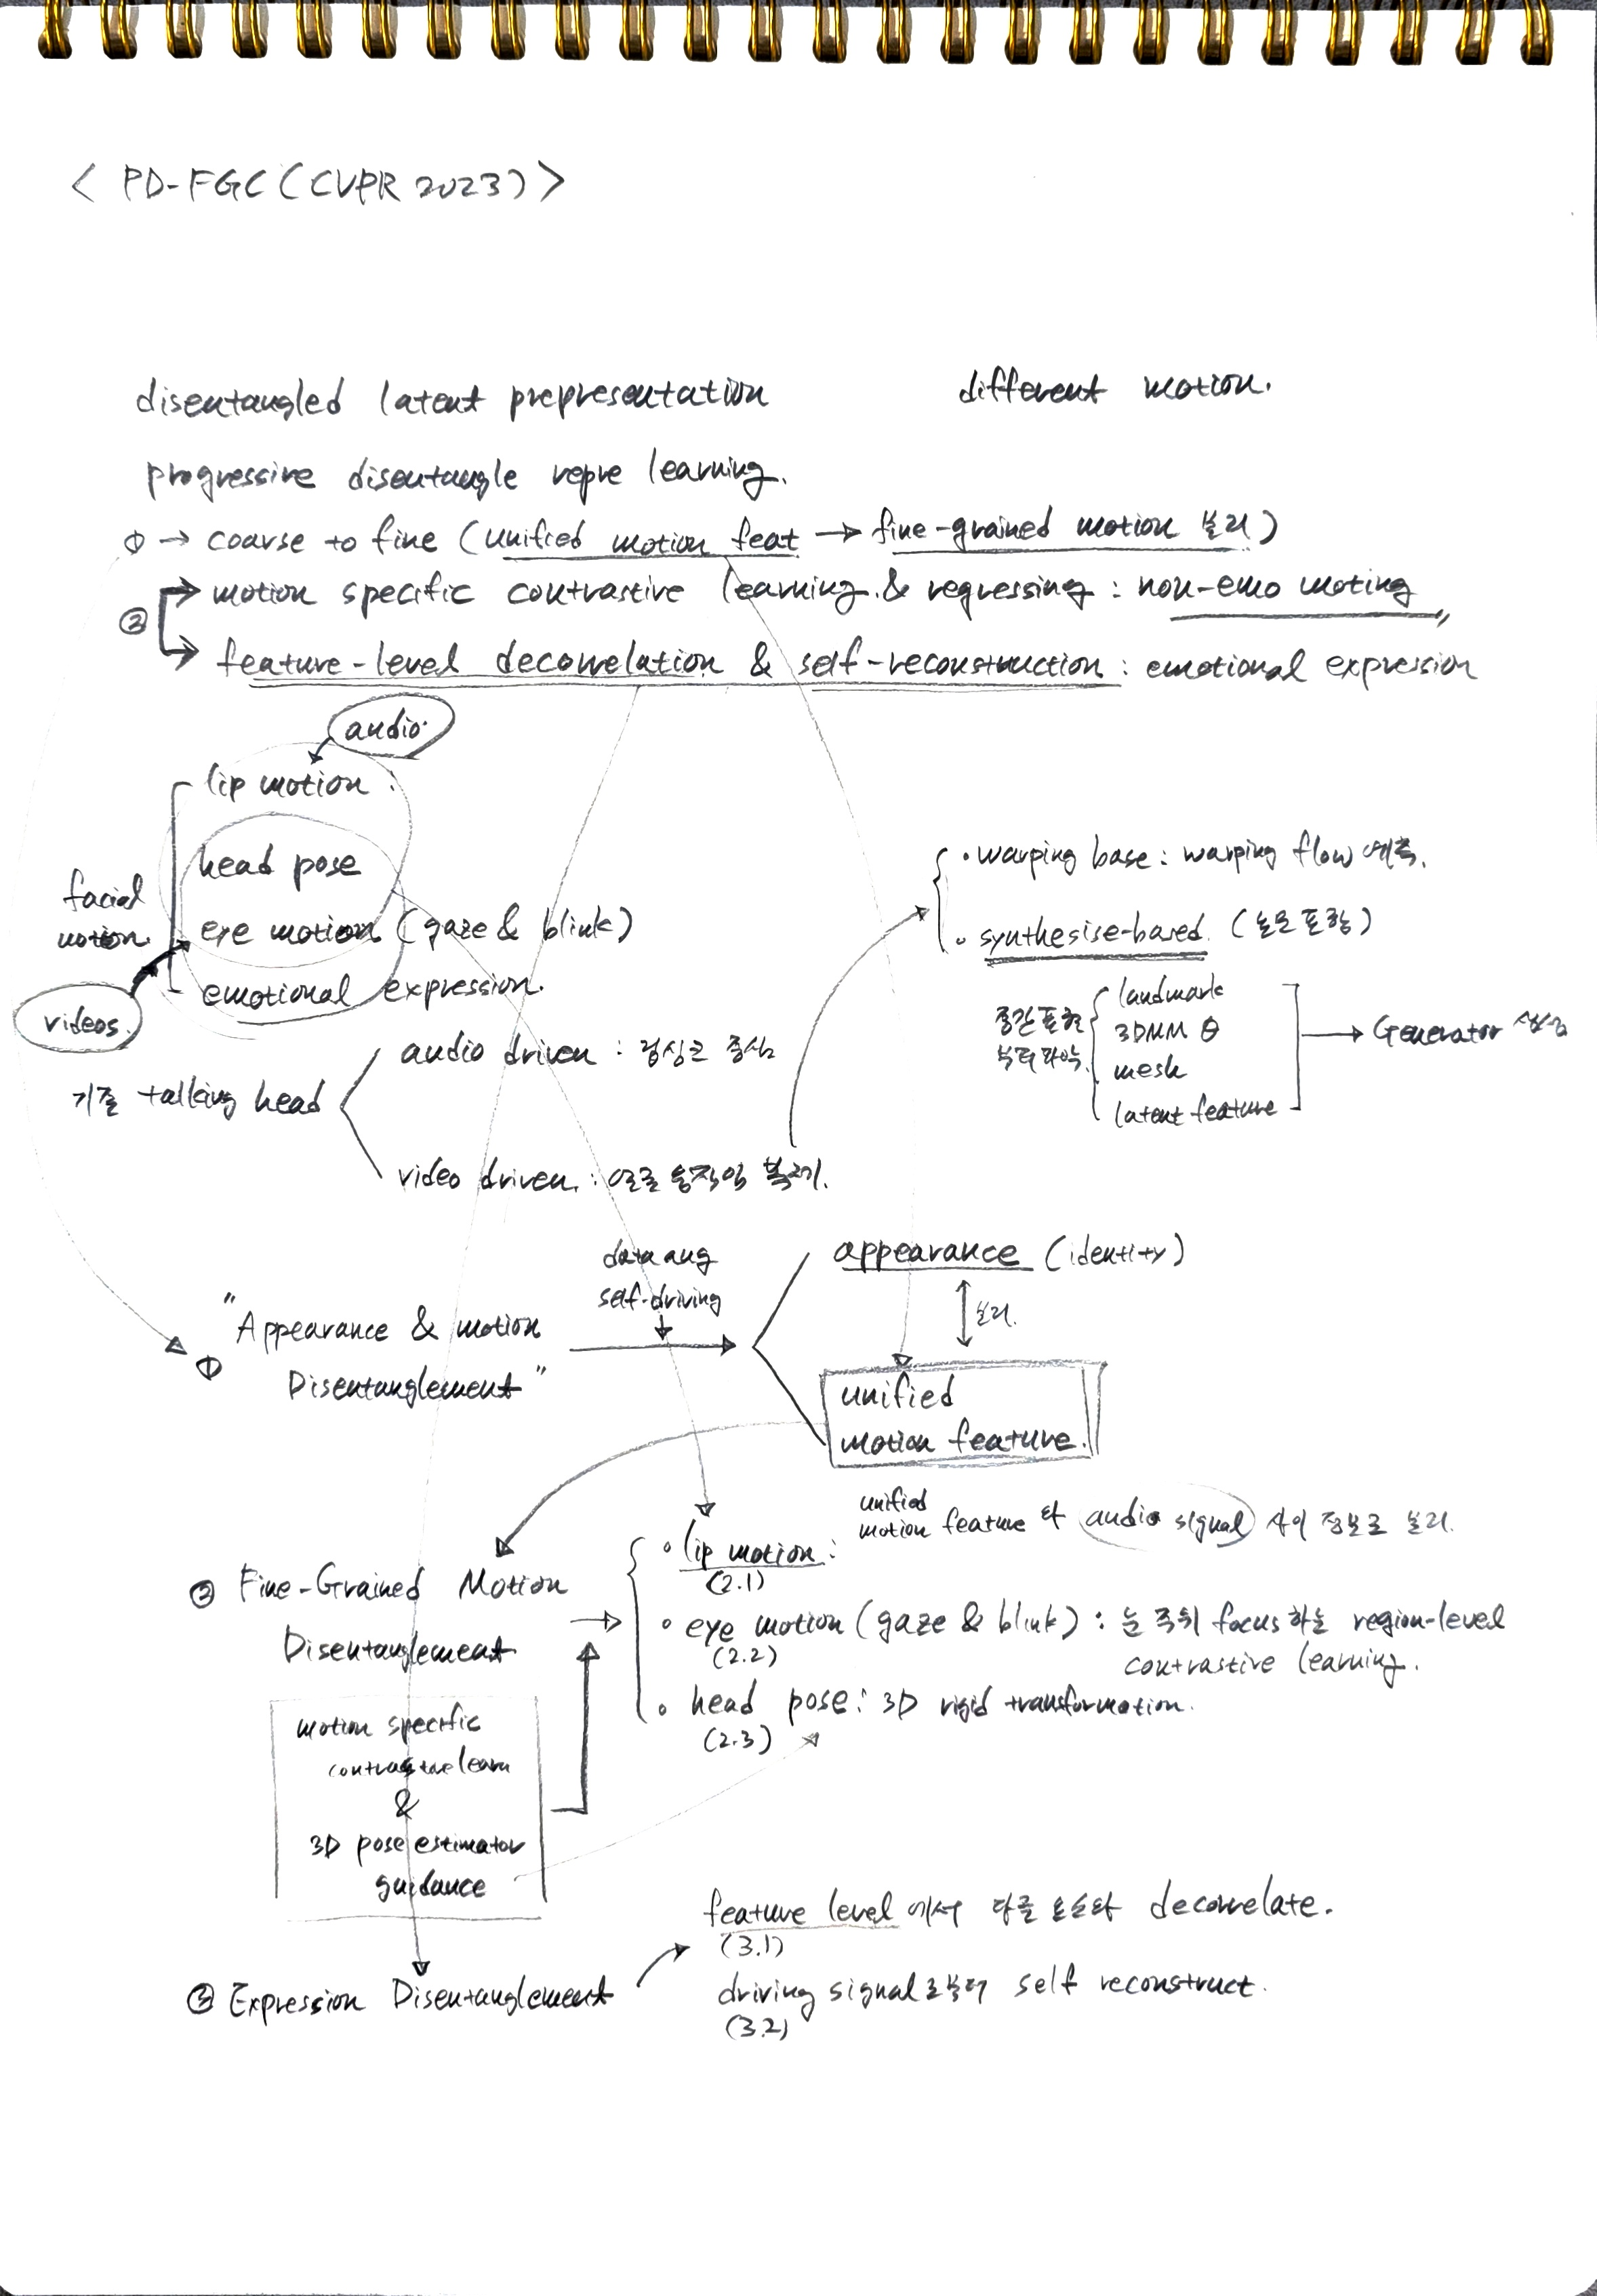 < PD-FGC (CVPR 2023) >
disentangled latent prepresentation different motion.
progressive disentangle repre learning.
① → coarse to fine (unified motion feat → fine-grained motion 분리)
② → motion specific contrastive learning & regressing : non-emo moting
→ feature-level decorrelation & self-reconstruction : emotional expression
audio
lip motion
head pose
facial motion.
eye motion (gaze & blink)
emotional expression.
videos.
• warping base : warping flow 예측.
• synthesise-based. (논문 포함)
중간 표현
부터 파악
landmark
3DMM θ
mesh
latent feature
→ Generator 생성
기존 talking head
audio driven : 립싱크 중심
video driven. : 얼굴 움직임 복제.
① "Appearance & motion
Disentanglement"
data aug
self-driving
appearance (identity)
분리.
unified
motion feature.
② Fine-Grained Motion
Disentanglement
• lip motion : unified motion feature 와 audio signal 사이 정보로 분리.
(2.1)
• eye motion (gaze & blink) : 눈 주위 focus 하는 region-level
contrastive learning.
(2.2)
• head pose : 3D rigid transformation.
(2.3)
motion specific
contrastive learn
&
3D pose estimator
guidance
③ Expression Disentanglement
feature level 에서 다른 요소와 decorrelate.
(3.1)
driving signal로부터 self reconstruct.
(3.2)